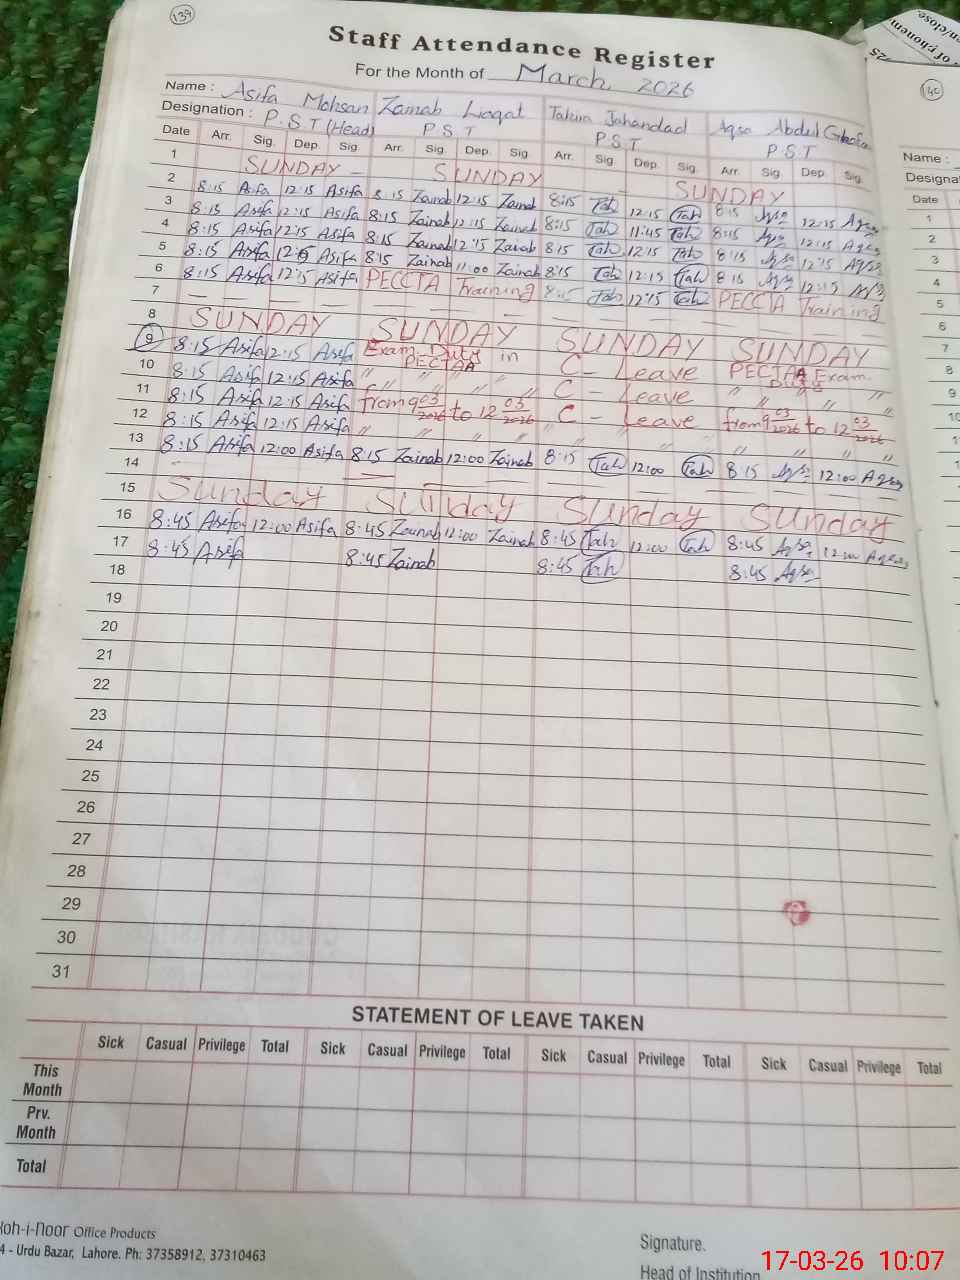 139
Staff Attendance Register
For the Month of March 2026
Name : Asifa Mohsan Zainab Liaqat Jahandad Aqsa Abdul
Designation : P.S.T (Head) P.S.T P.S.T P.S.T
Date Arr. Sig. Dep. Sig. Arr. Sig. Dep. Sig. Arr. Sig. Dep. Sig. Arr. Sig. Dep. Sig.
1 SUNDAY SUNDAY SUNDAY
2 8:15 Asifa 12:15 Asifa 8:15 Zainab 12:15 Zainab 8:15 Tah 12:15 Tah 8:15 Aqsa 12:15 Aqsa
3 8:15 Asifa 12:15 Asifa 8:15 Zainab 12:15 Zainab 8:15 Tah 11:45 Tah 8:15 Aqsa 12:15 Aqsa
4 8:15 Asifa 12:15 Asifa 8:15 Zainab 12:15 Zainab 8:15 Tah 12:15 Tah 8:15 Aqsa 12:15 Aqsa
5 8:15 Asifa 12:15 Asifa 8:15 Zainab 11:00 Zainab 8:15 Tah 12:15 Tah 8:15 Aqsa 12:15 Aqsa
6 8:15 Asifa 12:15 Asifa PECCTA Training 8:15 Tah 12:15 Tah PECCTA Training
7
8 SUNDAY SUNDAY SUNDAY SUNDAY
9 8:15 Asifa 12:15 Asifa Exam Duty in PECTAA C - Leave PECTAA Exam Duty
10 8:15 Asifa 12:15 Asifa " " " " C - Leave " " "
11 8:15 Asifa 12:15 Asifa from 9 03 2026 to 12 03 2026 C - Leave from 9 03 2026 to 12 03 2026
12 8:15 Asifa 12:15 Asifa " " " " " " " "
13 8:15 Asifa 12:00 Asifa 8:15 Zainab 12:00 Zainab 8:15 Tah 12:00 Tah 8:15 Aqsa 12:00 Aqsa
14
15 Sunday Sunday Sunday Sunday
16 8:45 Asifa 12:00 Asifa 8:45 Zainab 12:00 Zainab 8:45 Tah 12:00 Tah 8:45 Aqsa 12:00 Aqsa
17 8:45 Asifa 8:45 Zainab 8:45 Tah 8:45 Aqsa
18
19
20
21
22
23
24
25
26
27
28
29
30
31
STATEMENT OF LEAVE TAKEN
Sick Casual Privilege Total Sick Casual Privilege Total Sick Casual Privilege Total Sick Casual Privilege Total
This Month
Prv. Month
Total
Koh-i-noor Office Products
4 - Urdu Bazar, Lahore. Ph: 37358912, 37310463
Signature.
Head of Institution
17-03-26 10:07
140
Name :
Designat
Date
1
2
3
4
5
6
7
8
9
10